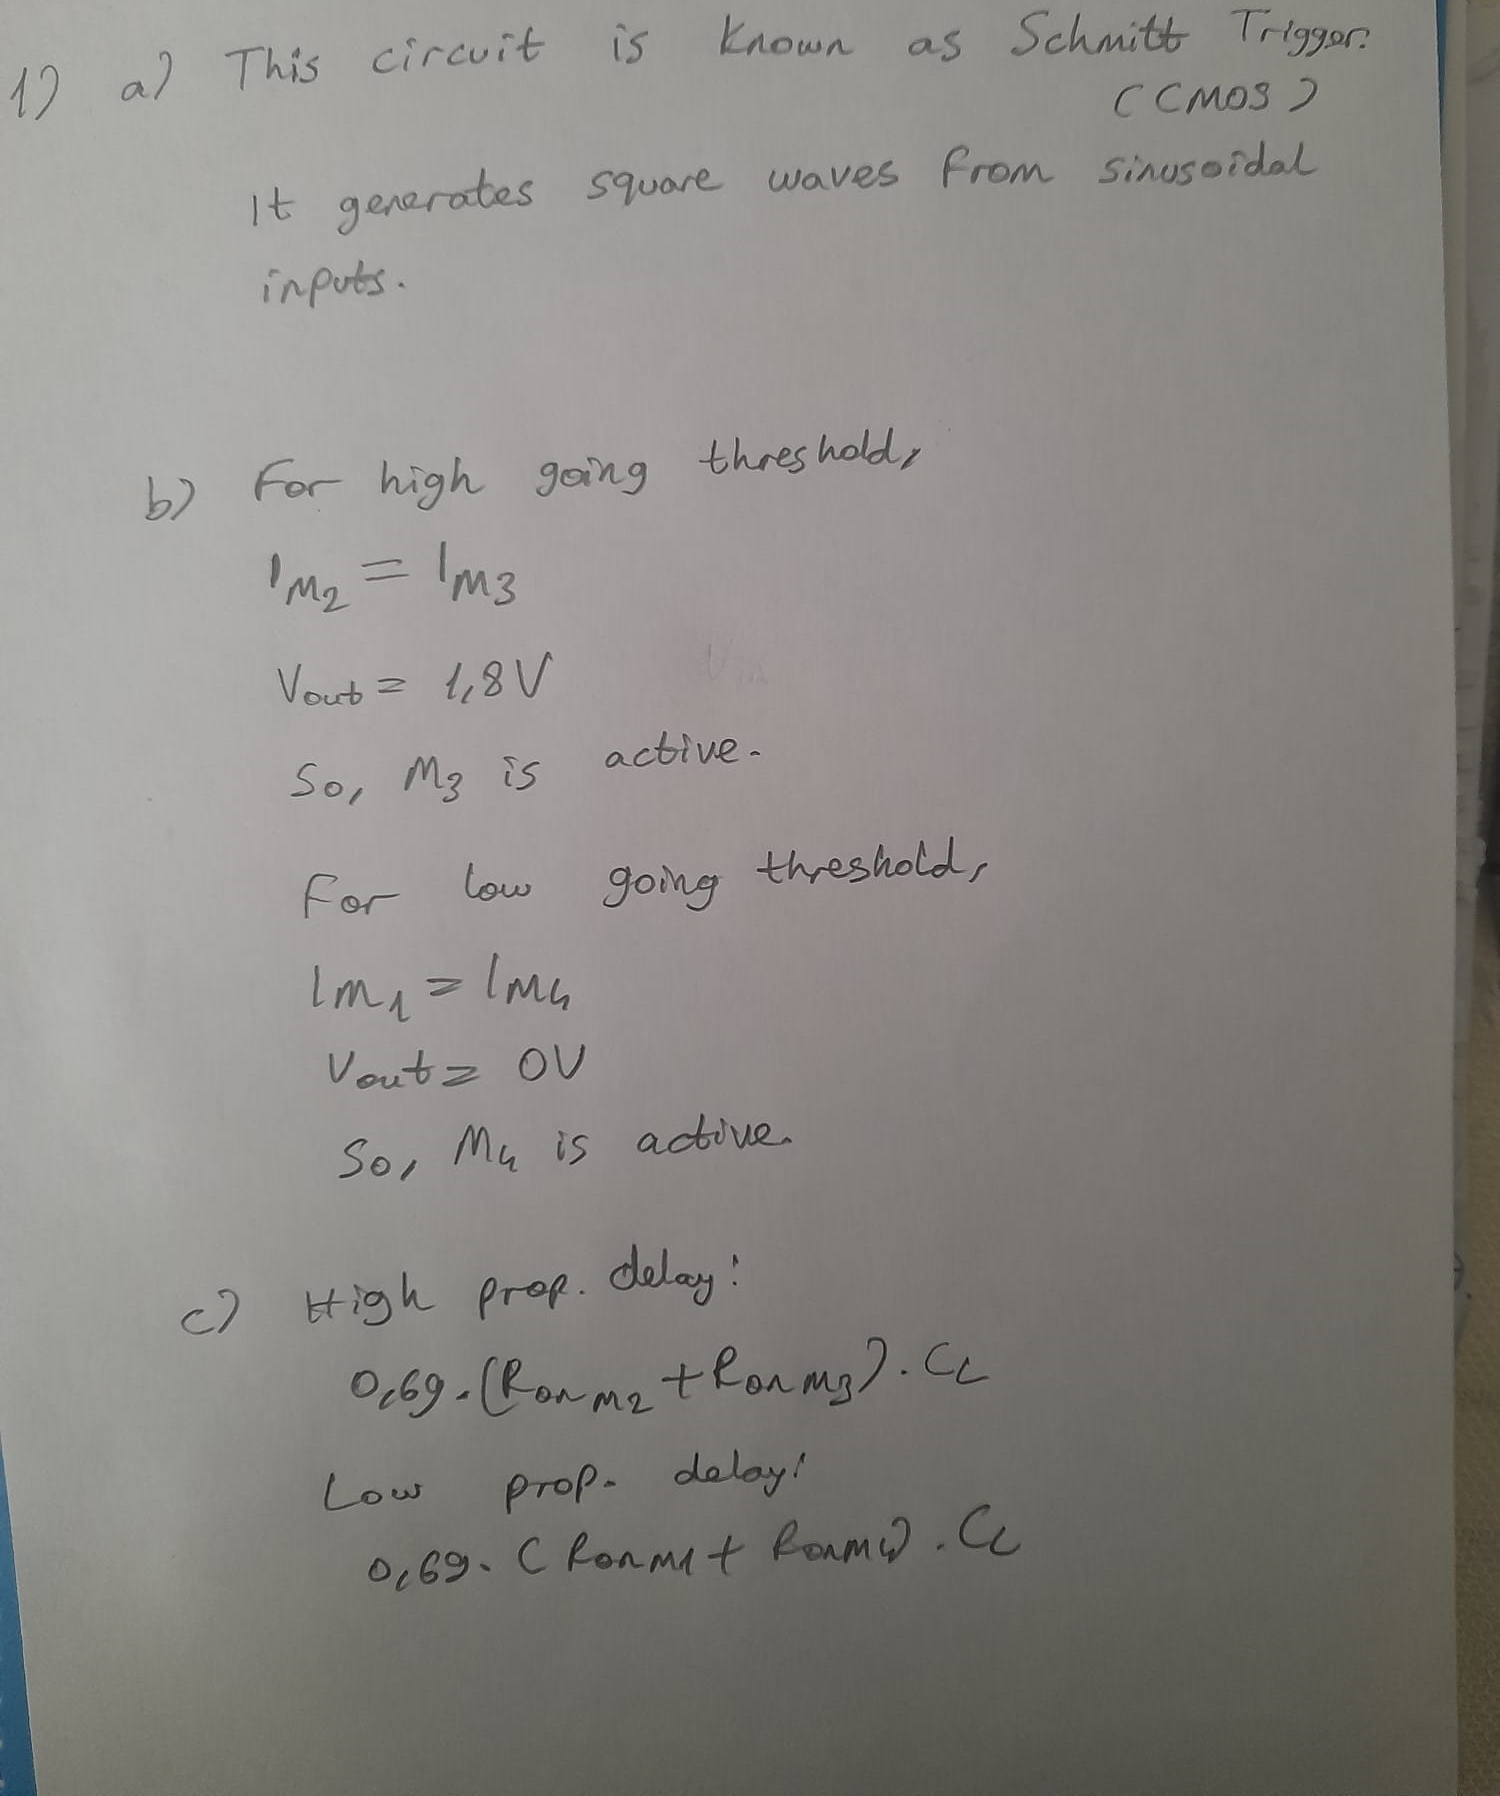 1) a) This circuit is known as Schmitt Trigger.
(CMOS)
It generates square waves from sinusoidal
inputs.
b) For high going threshold,
IM2 = IM3
Vout = 1,8V
So, M3 is active.
For low going threshold,
IM1 = IM4
Vout = 0V
So, M4 is active.
c) High prop. delay:
0,69.(RonM2 + RonM3).CL
Low prop. delay:
0,69.(RonM1 + RonM4).CL